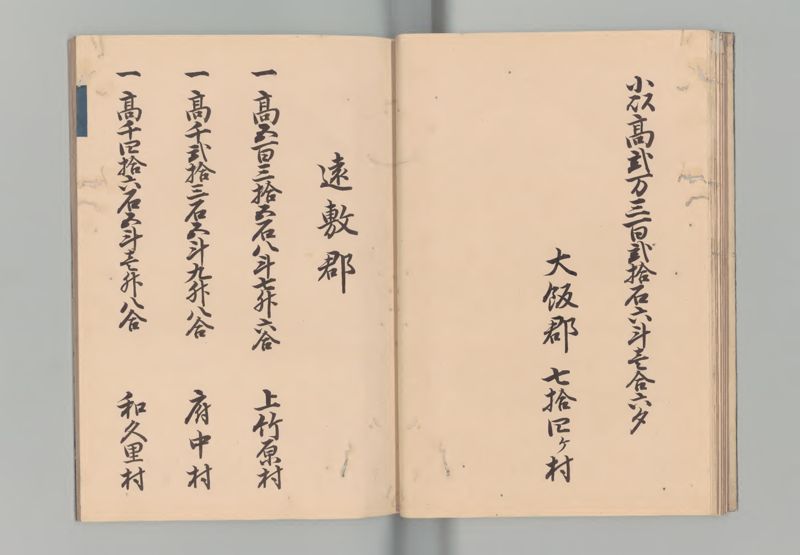 小以高弐万三百弐拾石六斗壱合六夕
大飯郡 七拾四ケ村
遠敷郡
一 高五百三拾五石八斗七升六合 上竹原村
一 高千弐拾三石五斗九升八合 府中村
一 高千四拾六石五斗壱升八合 和久里村